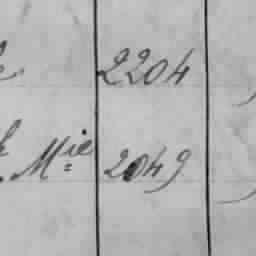 2204
Mie 2049